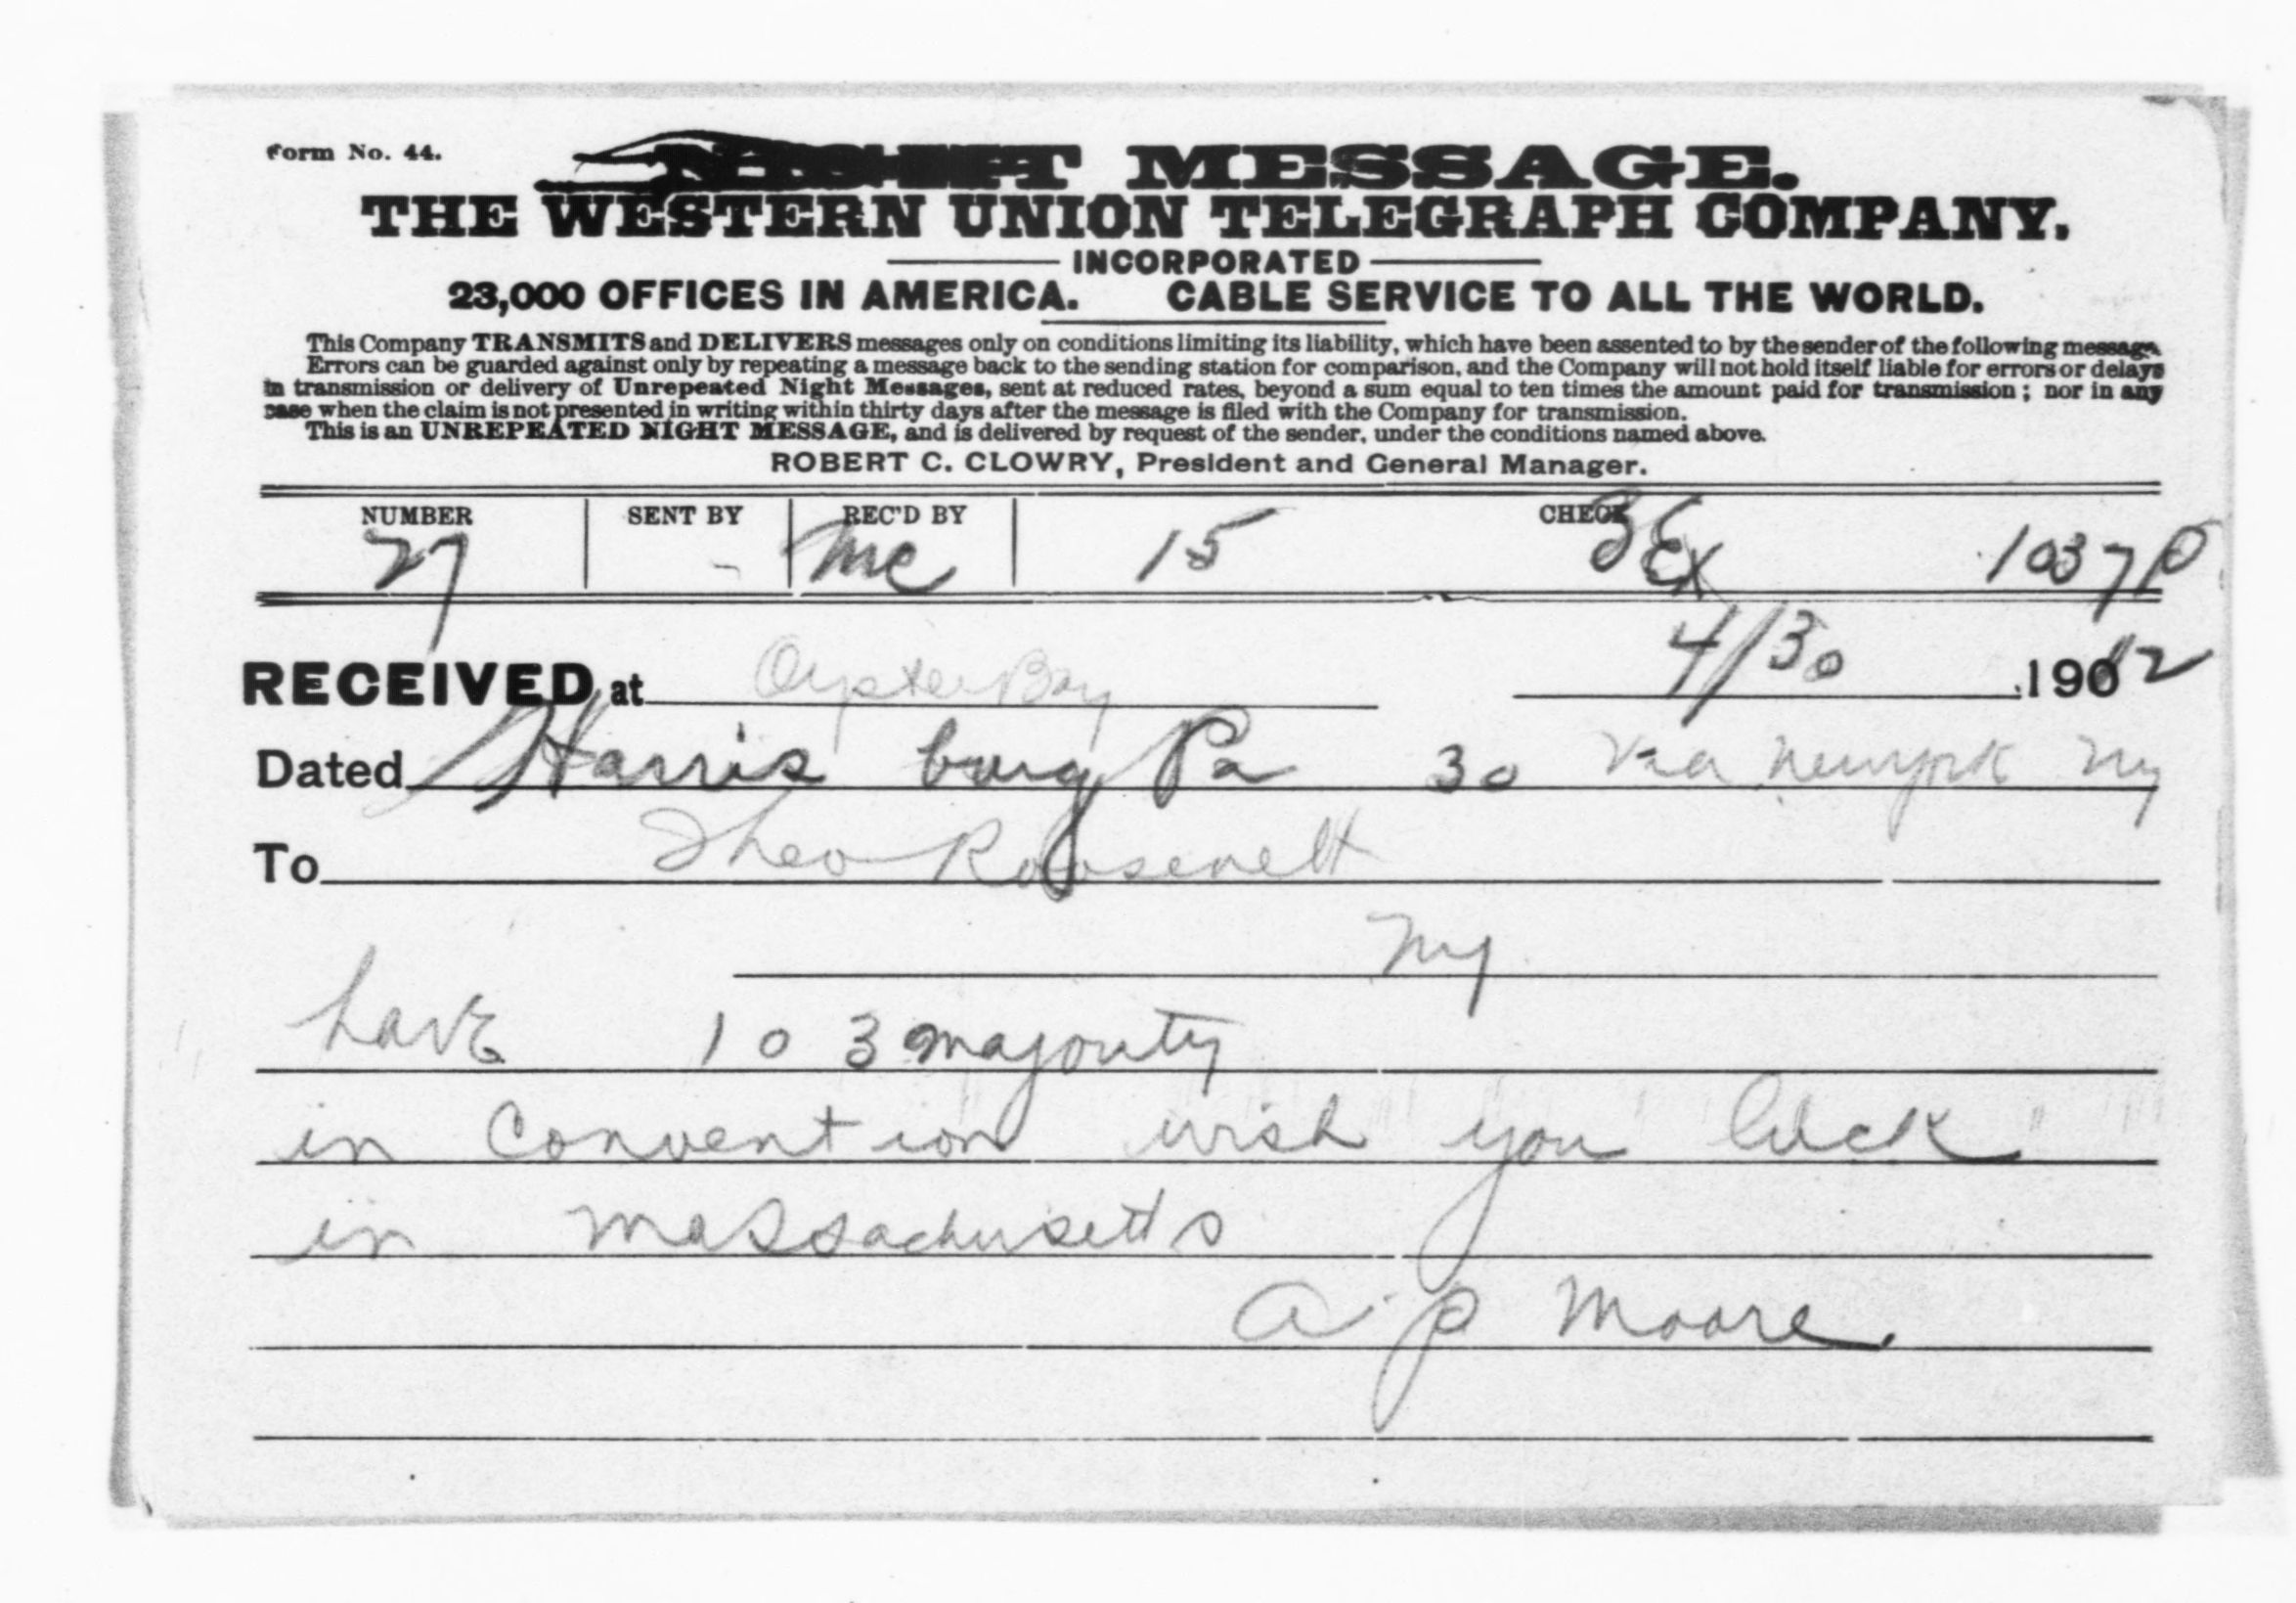 Form No. 44.
NIGHT MESSAGE.
THE WESTERN UNION TELEGRAPH COMPANY.
INCORPORATED
23,000 OFFICES IN AMERICA. CABLE SERVICE TO ALL THE WORLD.
This Company TRANSMITS and DELIVERS messages only on conditions limiting its liability, which have been assented to by the sender of the following message.
Errors can be guarded against only by repeating a message back to the sending station for comparison, and the Company will not hold itself liable for errors or delays
in transmission or delivery of Unrepeated Night Messages, sent at reduced rates, beyond a sum equal to ten times the amount paid for transmission; nor in any
case when the claim is not presented in writing within thirty days after the message is filed with the Company for transmission.
This is an UNREPEATED NIGHT MESSAGE, and is delivered by request of the sender, under the conditions named above.
ROBERT C. CLOWRY, President and General Manager.
NUMBER SENT BY REC'D BY CHECK
27 Mc 15 Ex 1037 P
RECEIVED at Oyster Bay 4/30 1912
Dated Harris burg Pa 30 via New York Ny
To Theo Roosevelt
Ny
have 103 majority
in Convention wish you luck
in Massachusetts
A. P Moore.